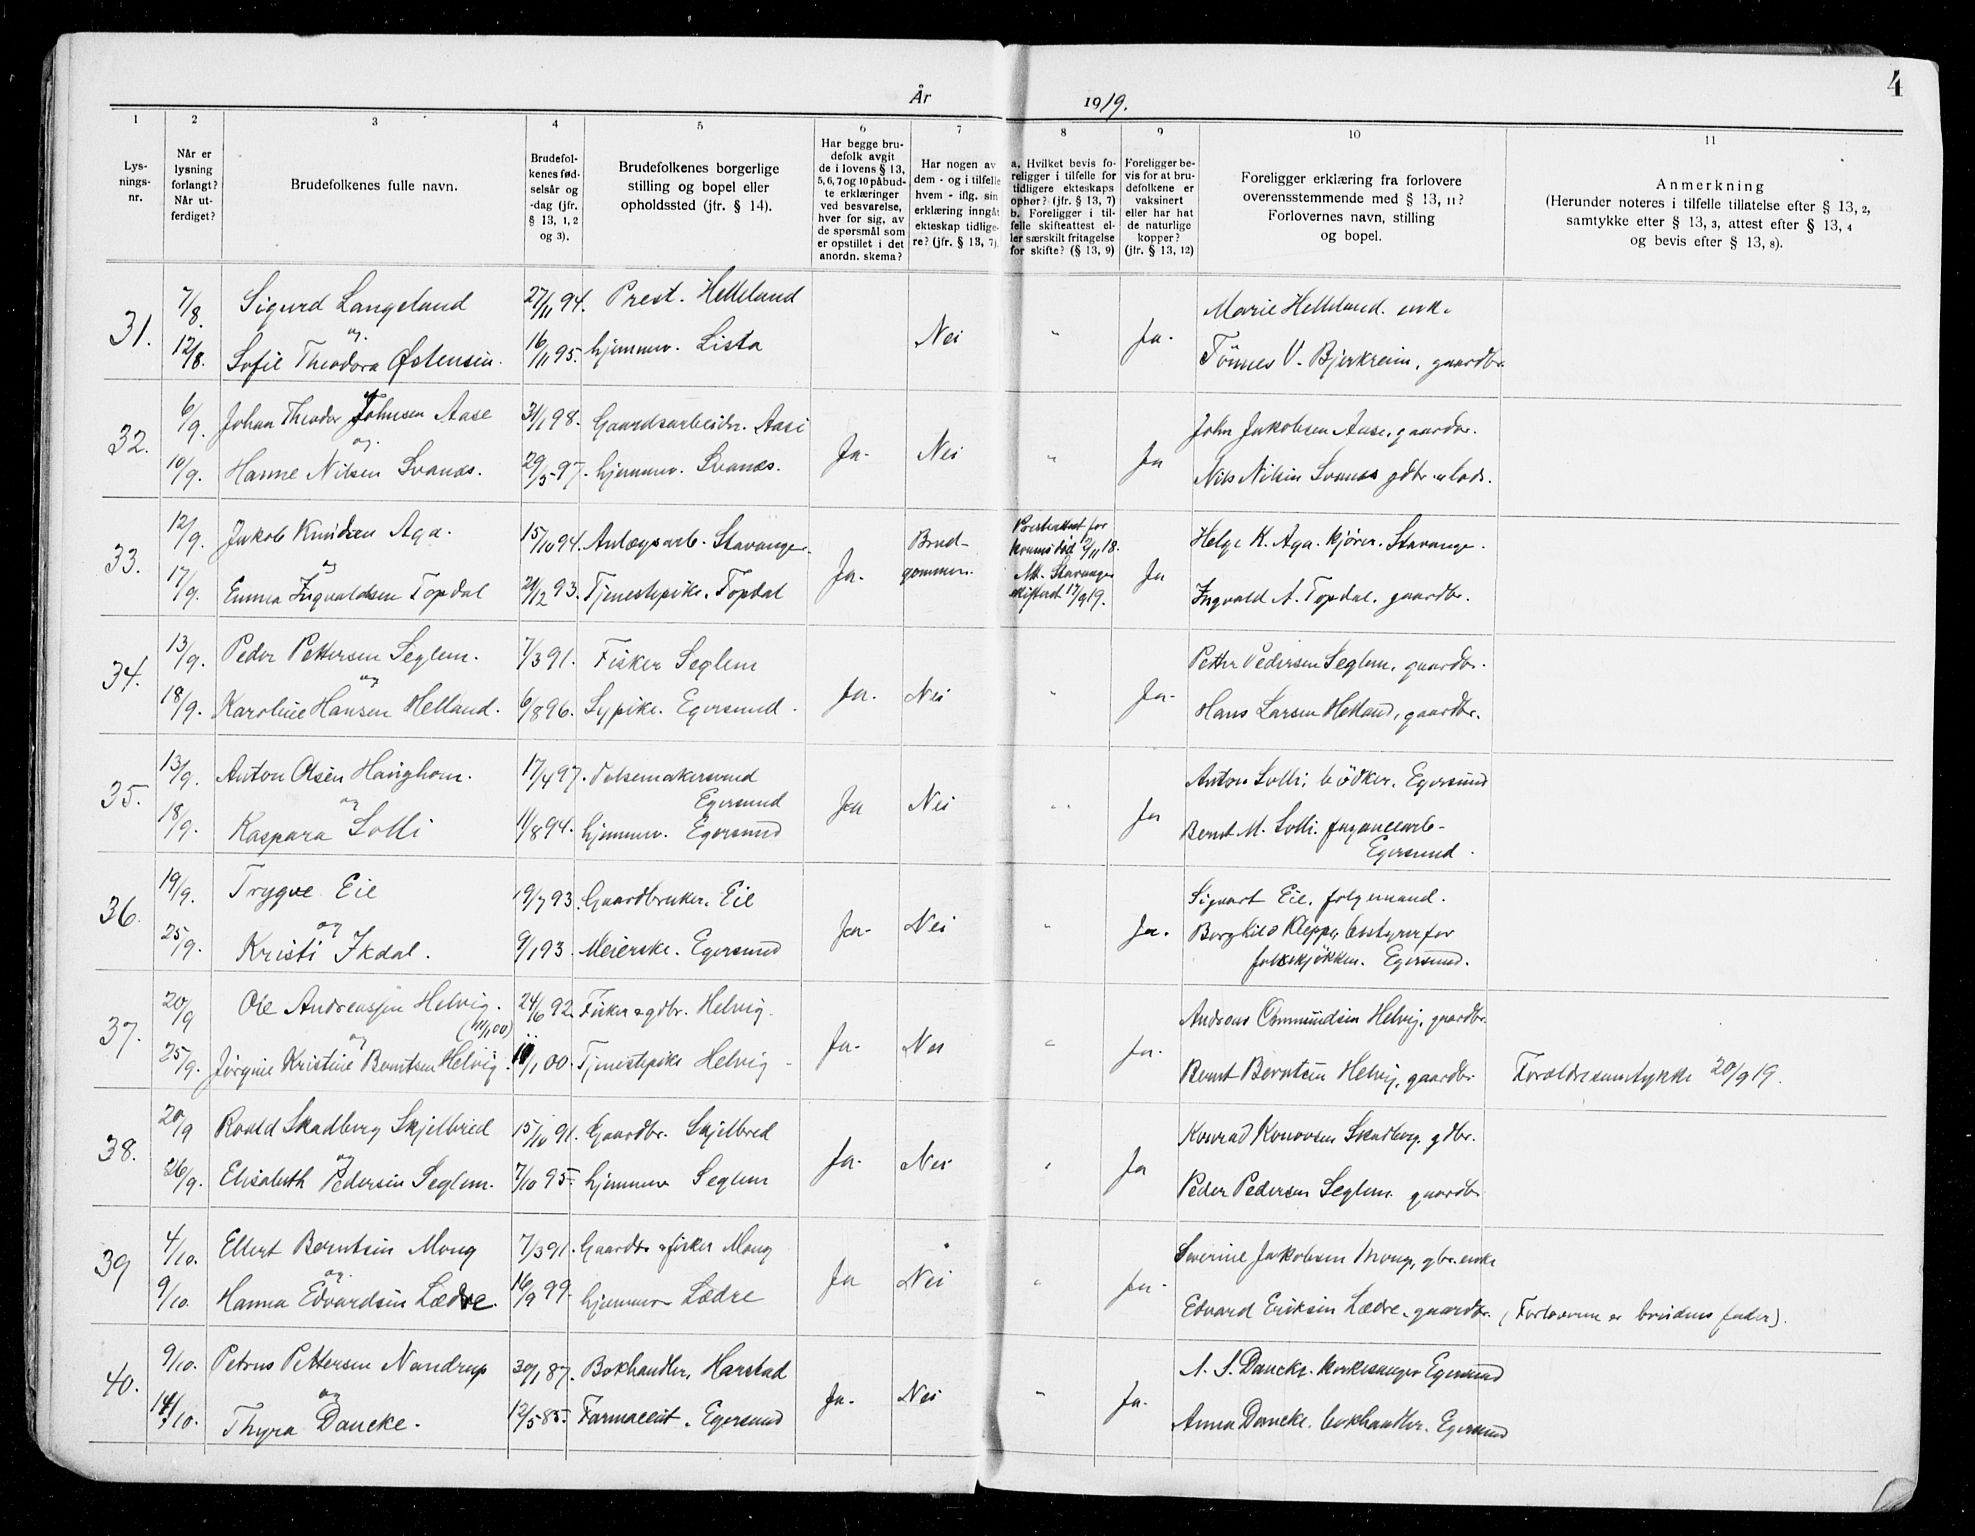 4
År 1919.
1 2 3 4 5 6 7 8 9 10 11
Lys-
nings-
nr.
Når er
lysning
forlangt?
Når ut-
ferdiget?
Brudefolkenes fulle navn.
Brudefol-
kenes fød-
selsår og
-dag (jfr.
§ 13, 1, 2
og 3).
Brudefolkenes borgerlige
stilling og bopel eller
opholdssted (jfr. § 14).
Har begge bru-
defolk avgit
de i lovens § 13,
5, 6, 7 og 10 påbud-
te erklæringer
ved besvarelse,
hver for sig, av
de spørsmål som
er opstillet i det
anordn. skema?
Har nogen av
dem - og i tilfelle
hvem - iflg. sin
erklæring inngåt
ekteskap tidlige-
re? (jfr. § 13, 7).
a. Hvilket bevis fo-
religger i tilfelle for
tidligere ekteskaps
ophør? (jfr. § 13, 7)
b. Foreligger i til-
felle skifteattest el-
ler særskilt fritagelse
for skifte? (§ 13, 9)
Foreligger be-
vis for at bru-
defolkene er
vaksinert
eller har hat
de naturlige
kopper?
(jfr. § 13, 12)
Foreligger erklæring fra forlovere
overensstemmende med § 13, 11?
Forlovernes navn, stilling
og bopel.
Anmerkning
(Herunder noteres i tilfelle tillatelse efter § 13, 2,
samtykke efter § 13, 3, attest efter § 13, 4
og bevis efter § 13, 8).
31. 7/8. Sigurd Langeland 27/11 94. Prest. Helleland Marie Helleland. enk.
og Nei " Ja.
12/8. Sofie Theodora Østensen. 16/11 95. hjemmev. Lista Tönnes V. Bjerkreim, gaardbr.
32. 6/9. Johan Theodor Johnsen Aase 31/1 98. Gaardsarbeider. Aase John Jakobsen Aase, gaardbr.
og Ja. Nei " Ja
10/9. Hanne Nilsen Svanæs. 29/5 97. hjemmev. Svanæs. Nils Nilsen Svanæs gdbr. & lods.
33. 12/9. Jakob Knudsen Aga. 15/10 94. Anlægsarb. Stavanger. Brud- Presteattest for Helge K. Aga. kjörer. Stavanger.
og Ja. gommen. konens död 12/11 18. Ja
17/9. Emma Ingvaldsen Topdal 21/12 93. Tjenestepike. Topdal Att. Stavanger Ingvald A. Topdal. gaardbr.
skifteret 17/9 19.
34. 13/9. Peder Pettersen Seglem. 7/3 91. Fisker Seglem Petter Pedersen Seglem, gaardbr.
og Ja. Nei " Ja.
18/9. Karoline Hansen Helland. 6/8 96. Sypike. Egersund. Hans Larsen Helland, gaardbr.
35. 13/9. Anton Olsen Haughom. 17/4 97. Pølsemakersvend Anton Solli, bödker. Egersund
og Egersund Ja Nei " Ja
18/9. Kaspara Solli 11/8 94. hjemmev. Egersund Bernt M. Solli. fayancearb.
Egersund.
36. 19/9. Trygve Eie 19/7 93. Gaardbruker. Eie Sigvart Eie. folgemand.
og Ja. Nei " Ja.
25/9. Kristi Ikdal. 9/1 93. Meierske. Egersund Borghild Kleppe, bestyrer for
folkekjøkken. Egersund.
37. 20/9 Ole Andreassen Helvig. 24/6 92. Fisker & gdbr. Helvig. Andreas Ommundsen Helvig, gaardbr.
og (11/1 00) Ja. Nei " Ja.
25/9. Jörgine Kristine Berntsen Helvig. 11/1 00. Tjenestepike Helvig Bernt Berntsen Helvig, gaardbr. Forældresamtykke 20/9 19.
38. 20/9 Roald Skadberg Skjelbred 15/10 91. Gaardbr. Skjelbred Konrad Konovsen Skadberg. gdbr.
og Ja. Nei " Ja
26/9. Elisabeth Pedersen Seglem. 7/10 95. hjemmev Seglem Peder Pedersen Seglem. gaardbr.
39 4/10. Ellert Berntsen Mong 7/3 91. Gaardbr & fisker Mong Severine Jakobsen Mong, gbr. enke
og Ja Nei " Ja.
9/10. Hanna Edvardsen Lædre. 16/9 99. hjemmev. Lædre Edvard Eriksen Lædre. gaardbr. (Forloveren er brudens fader).
40. 9/10. Petrus Pettersen Nandrup 30/1 87. Bokhandler, Harstad A. S. Dancke. kirkesanger Egersund
og Ja. Nei " Ja.
14/10. Thyra Dancke. 12/5 85. Farmaceut. Egersund Anna Dancke. bokhandler. Egersund